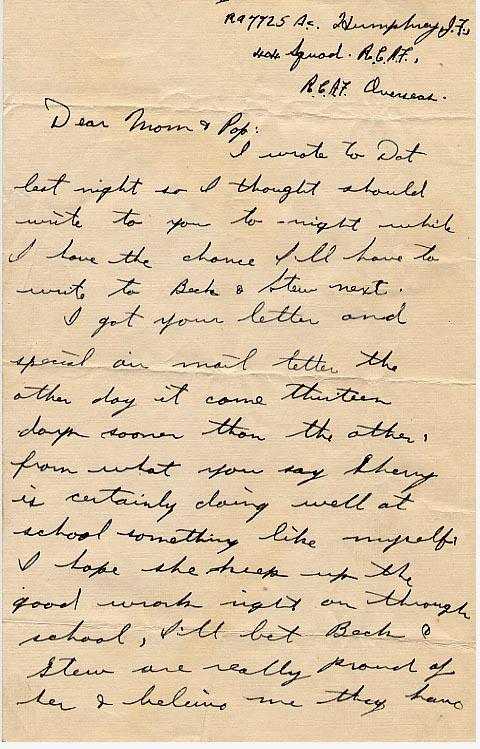 R97725 Ac. Humphrey, J.F.,
404 Squad. R.C.A.F.,
R.C.A.F. Overseas.
Dear Mom & Pop:
I wrote to Dot
last night so I thought should
write to you to-night while
I have the chance I'll have to
write to Beck & Stew next.
I got your letter and
special air mail letter the
other day it came thirteen
days sooner than the other,
from what you say Sherry
is certainly doing well at
school something like myself,
I hope she keep up the
good work right on through
school, I'll bet Beck &
Stew are really proud of
her & beleive me they have